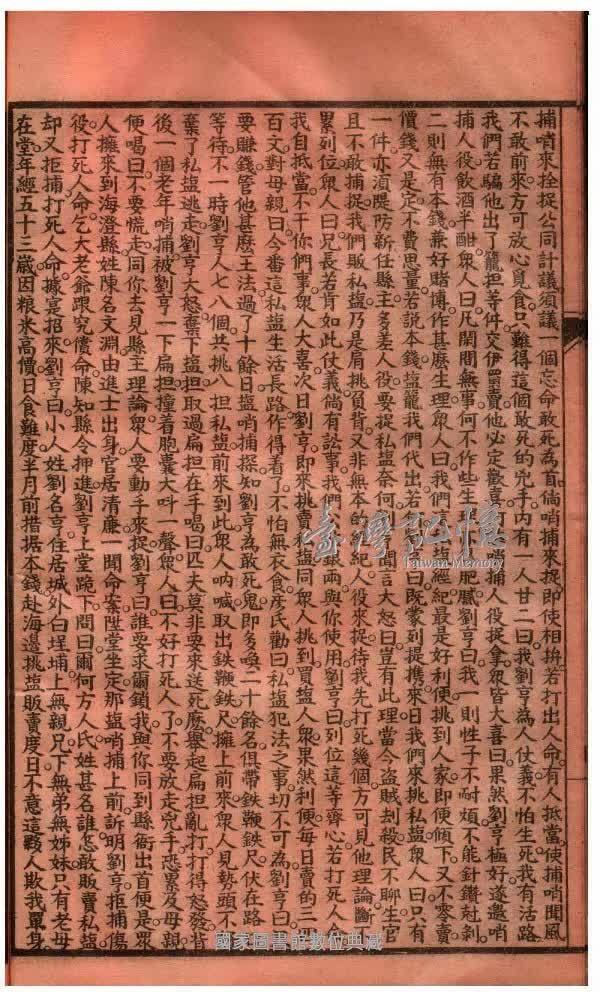 捕哨來拴捉公同計議須議一個忘命敢死為首倘哨捕來捉即使相拚若打出人命有人抵當使捕哨聞風
不敢前來方可放心覓食只難得這個敢死的兇手內有一人廿二曰我劉亨為人仗義不怕生死我有活路
我們若騙他出了籠担等件交伊賣他必定歡喜哨捕人役捉拿眾皆大喜曰果然劉亨極好遂邀哨
捕人役飲酒半酣眾人曰凡閑閒無事何不作些生理肥膩劉亨曰我一則性子不耐煩不能針鑽刦剝
二則無有本錢兼好賭博作甚麽生理眾人曰我們這塩經紀最是好利便挑到人家即便傾下又不零賣
價錢又是定不費思量若說本錢塩籠我們代出若曰既蒙列提携來日我們來挑私塩眾人曰只有
一件亦湏隄防新任縣主多差人役要捉私塩奈何聞言大怒曰豈有此理當今盜賊刦殺民不聊生官
且不敢捕捉我們販私塩乃是肩挑負背又非無本的經紀人役來捉待我先打死幾個方可見他理論斷
累列位眾人曰兄長若肯如此仗義倘有訟事我們公銀兩與你使用劉亨曰列位這等齊心若打死人命
我自抵當不干你們事眾人大喜次日劉亨即來挑賣塩同眾人挑到買塩人眾果然利便每日賣的二三
百文對母親曰今番這私塩生活長路作得看了不怕無衣食彥氏勸曰私塩犯法之事切不可為劉亨曰
要賺錢管他甚麽王法過了十餘日塩哨捕探知劉亨為敢死鬼即多喚二十餘名俱帶鉄鞭鉄尺伏在路
等待不一時劉亨人七八個共挑八担私塩前來到此眾人吶喊取出鉄鞭鉄尺擁上前來眾人見勢頭不
棄了私塩逃走劉亨大怒棄下塩担取過扁担在手喝曰匹夫莫非要來送死麽舉起扁担亂打打得怒發背
後一個老年哨捕被劉亨一下扁担撞着胞囊大呌一聲眾人曰不好打死人了不要放走兇手恐累及母親
便喝曰不要慌走同你去見縣主理論眾人要動手來捉劉亨曰誰要求爾鎖我與你同到縣衙出首便是眾
人擁來到海澄縣姓陳名文淵由進士出身官居清廉一聞命案陞堂坐定那塩哨捕上前訴明劉亨拒捕傷
役打死人命乞大老爺跟究償命陳知縣令押進劉亨上堂跪下問曰爾何方人氏姓甚名誰怎敢販賣私塩
却又拒捕打死人命據寔招來劉亨曰小人姓劉名亨住居城外白埕埔上無親兄下無弟無姊妹只有老母
在堂年經五十三歲因粮米高價日食難度半月前措據本錢赴海邊挑塩販賣度日不意這夥人欺我單身
臺灣記憶
Taiwan Memory
國家圖書館數位典藏